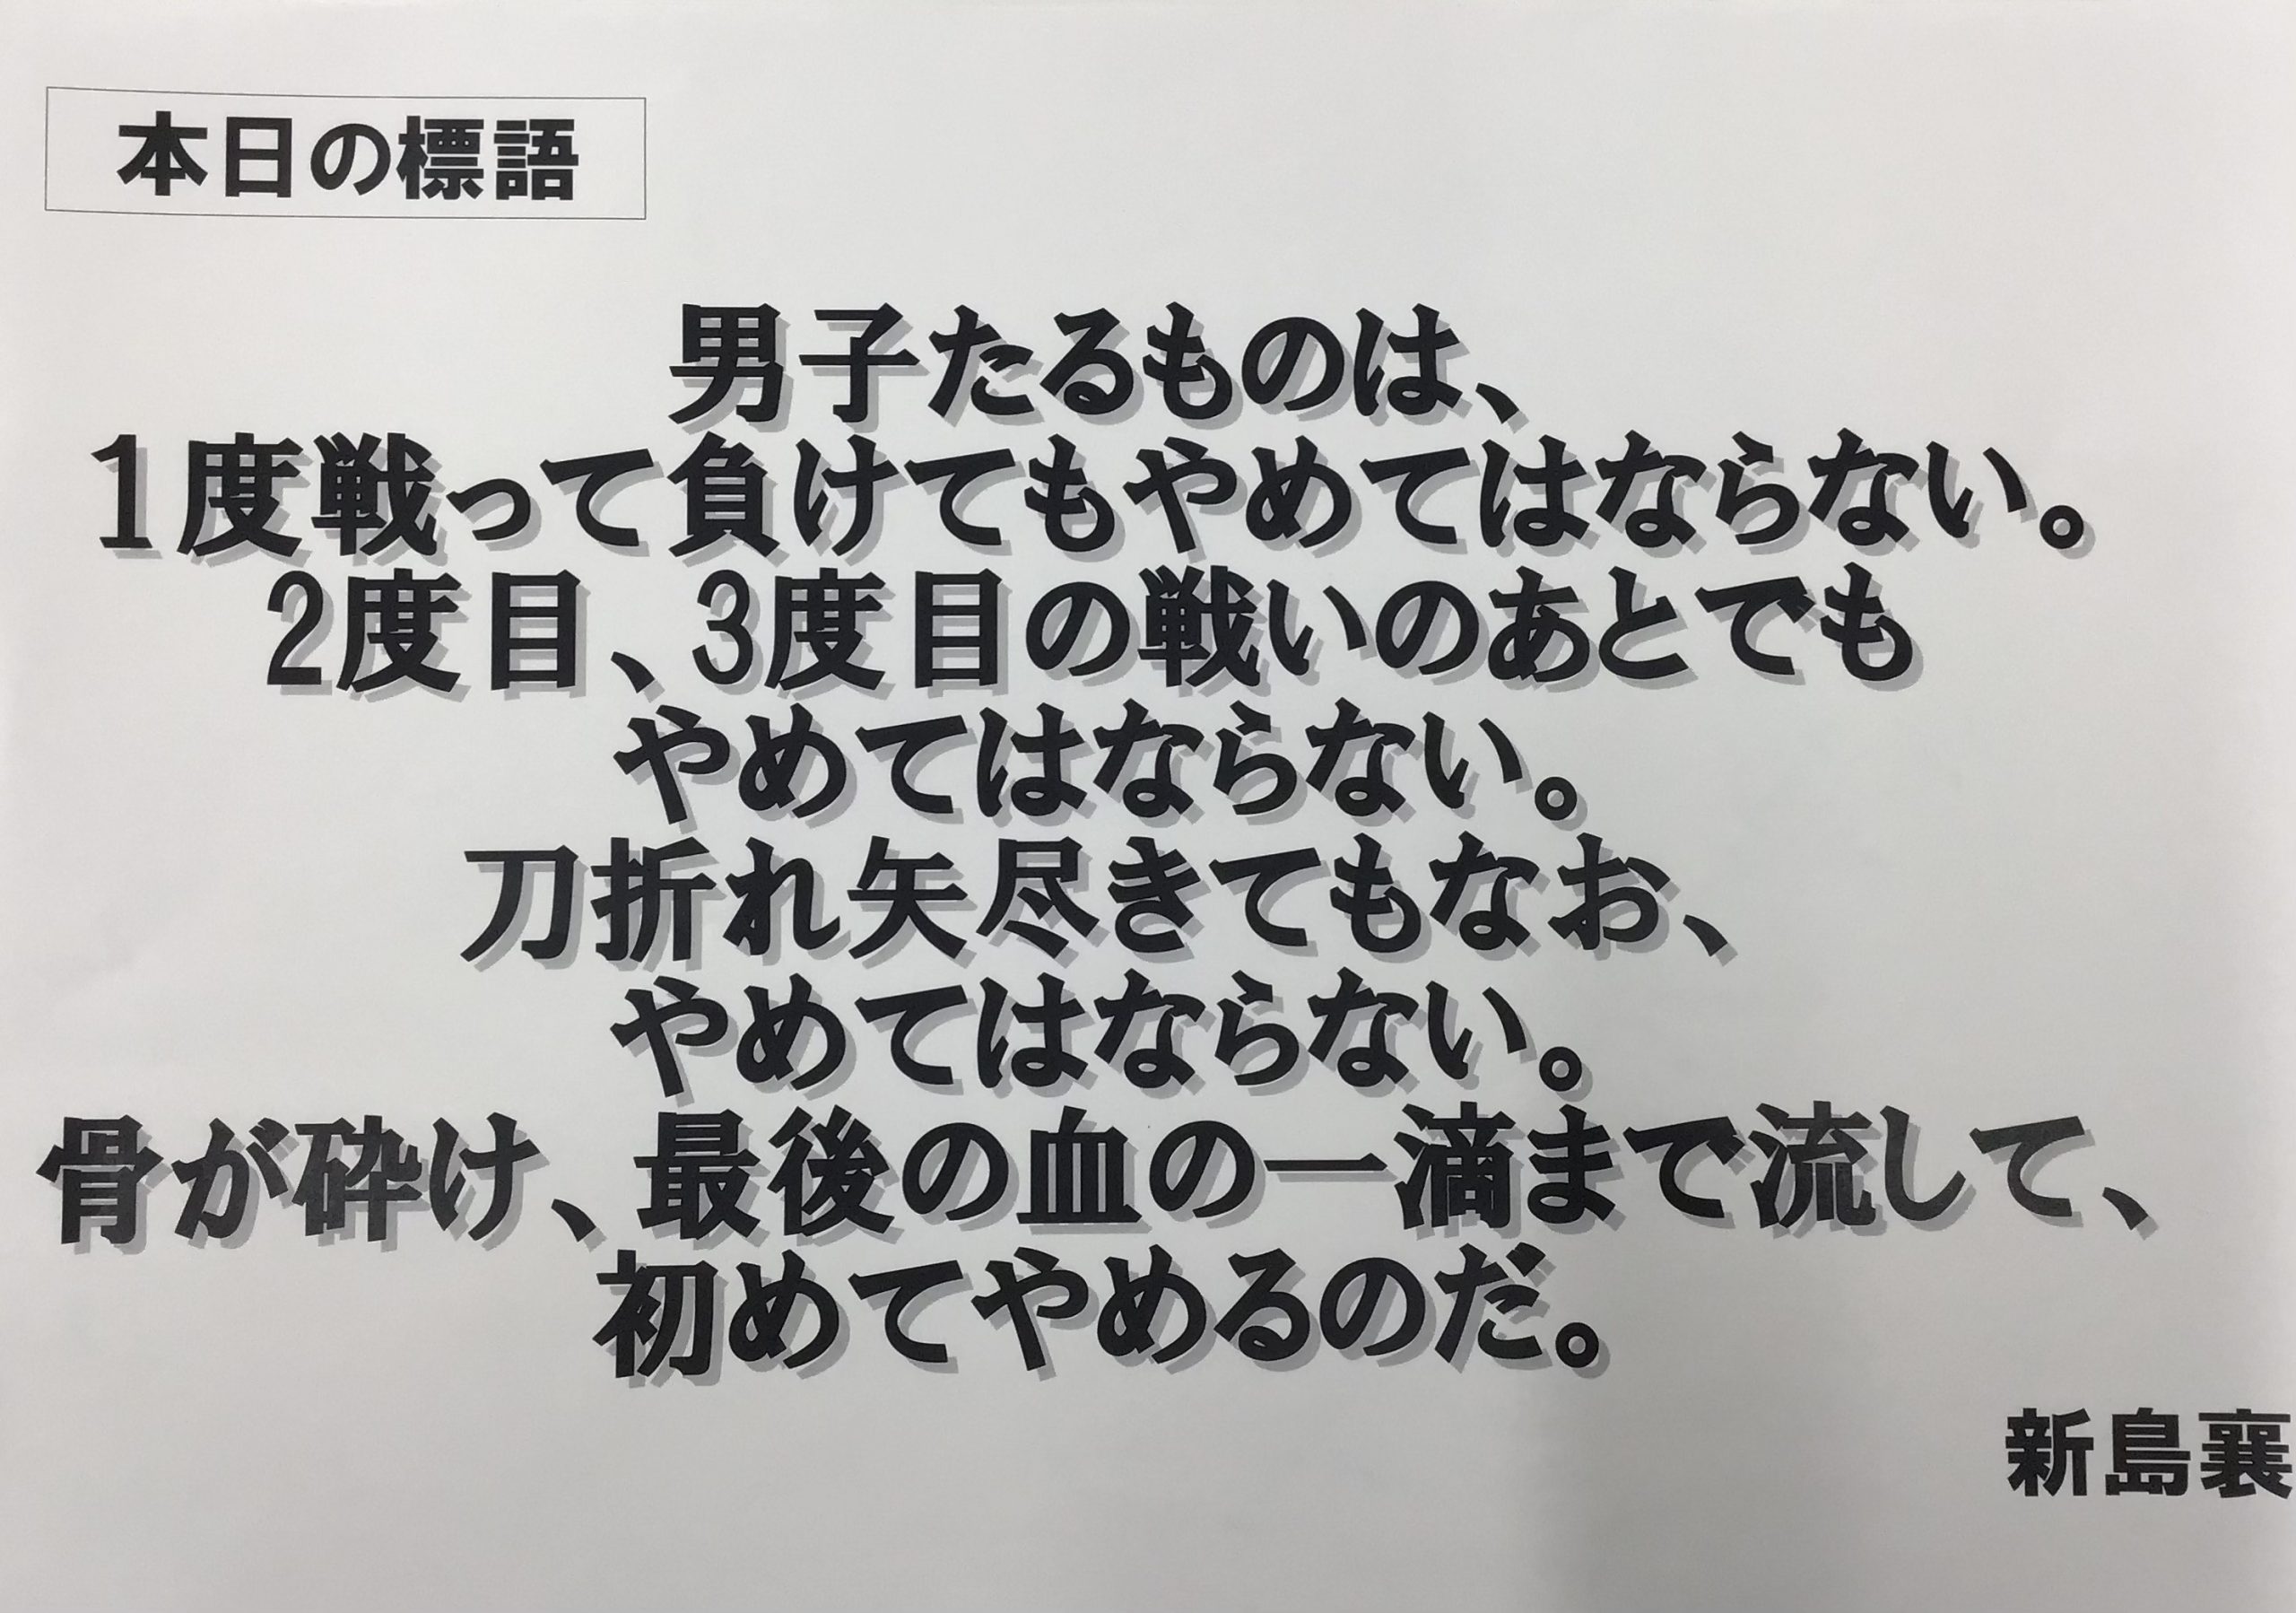 本日の標語
男子たるものは、
1度戦って負けてもやめてはならない。
2度目、3度目の戦いのあとでも
やめてはならない。
刀折れ矢尽きてもなお、
やめてはならない。
骨が砕け、最後の血の一滴まで流して、
初めてやめるのだ。
新島襄